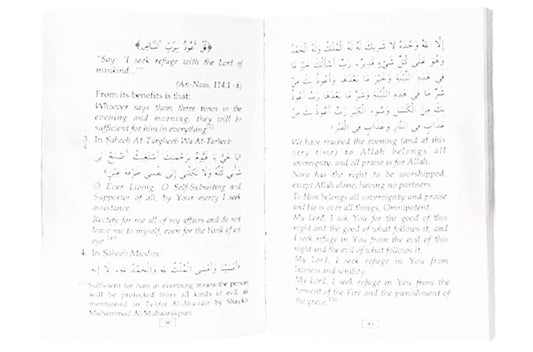 ﴿قُلْ أَعُوذُ بِرَبِّ النَّاسِ﴾
"Say: 'I seek refuge with the Lord of
mankind...'"
(An-Naas, 114:1-6)
From its benefits is that:
Whoever says them three times in the
evening and morning, they will be
sufficient for him in everything
3. In Saheeh At-Targheeb Wa At-Tarheeb:
O Ever Living, O Self-Subsisting and
Supporter of all, by Your mercy I seek
assistance.
Rectify for me all of my affairs and do not
leave me to myself, even for the blink of an
eye.
4. In Saheeh Muslim:
أَمْسَيْنَا وَأَمْسَى الْمُلْكُ للهِ وَالْحَمْدُ للهِ، لَا إِلَهَ
Sufficient for him in everything means the person
will be protected from all kinds of evil, as
mentioned in Tuhfat Al-Ahwadee by Shaykh
Muhammad Al-Mubaarakpuri
إِلَّا اللهُ وَحْدَهُ لَا شَرِيكَ لَهُ لَهُ الْمُلْكُ وَلَهُ الْحَمْدُ
وَهُوَ عَلَى كُلِّ شَيْءٍ قَدِيرٌ، رَبِّ أَسْأَلُكَ خَيْرَ مَا
فِي هَذِهِ اللَّيْلَةِ وَخَيْرَ مَا بَعْدَهَا وَأَعُوذُ بِكَ مِنْ
شَرِّ مَا فِي هَذِهِ اللَّيْلَةِ وَشَرِّ مَا بَعْدَهَا رَبِّ أَعُوذُ
بِكَ مِنَ الْكَسَلِ وَسُوءِ الْكِبَرِ، رَبِّ أَعُوذُ بِكَ مِنْ
عَذَابٍ فِي النَّارِ وَعَذَابٍ فِي الْقَبْرِ
We have reached the evening (and at this
very time) to Allah belongs all
sovereignty, and all praise is for Allah.
None has the right to be worshipped,
except Allah alone, having no partners.
To Him belongs all sovereignty and praise
and He is over all things, Omnipotent.
My Lord, I ask You for the good of this
night and the good of what follows it, and
I seek refuge in You from the evil of this
night and the evil of what follows it.
My Lord, I seek refuge in You from
laziness and senility.
My Lord, I seek refuge in You from the
torment of the Fire and the punishment of
the grave.